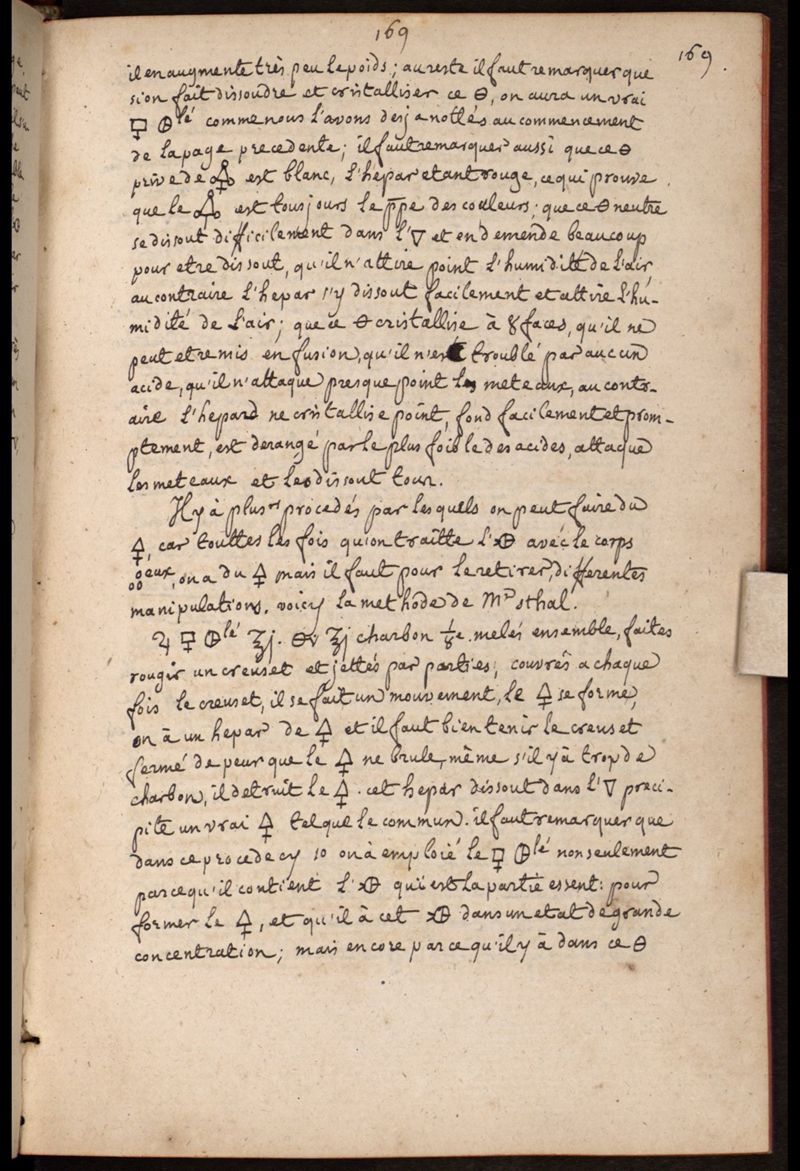 169
169.
il en augmente très peu le poids ; au reste il faut remarquer que
si on fait dissoudre et cristalliser ce 🜔, on aura un vrai
🜿 🜖lé comme nous l'avons desja nottés au commencement
de la page precedente ; il faut remarquer aussi que ce 🜔
privé de 🜍 est blanc, l'hepar etant rouge, ce qui prouve
que le 🜍 est tousjours le ppe des couleurs ; que ce 🜔 neutre
se dissout difficilement dans l'🜄 et en demende beaucoup
pour etre dissout, qu'il n'attire point l'humiditté de l'air
au contraire l'hepar s'y dissout facilement et attire l'hu-
midité de l'air ; que ce 🜔 cristallise à 8 faces, qu'il ne
peut etre mis en fusion, qu'il n'est troublé par aucun
acide, qu'il n'attaque presque point les meteaux, au contr-
aire l'hepard ne cristallise point, fond facilement et prom-
ptement, est derangé par le plus foible des acides, attaque
les meteaux et les dissout tour.
Il y à plusrs procedés par lesquels on peut faire du
🜍, car touttes les fois qu'on traitte l'🜖 avec le corps
eux, on a du 🜍 mais il faut pour le retirer, differentes
manipulations. voicy la methode de Mr sthal.
♃ 🜿 🜖lé ℥j. 🜔v ℥j charbon 1/8e. melés ensemble, faites
rougir un creuset et jettés par parties, couvrés a chaque
fois le creuset, il se fait un mouvement, le 🜍 se forme,
on à un hepar de 🜍 et il faut bien tenir le creuset
fermé de peur que le 🜍 ne brule, même s'il y à trop de
charbon, il detruit le 🜍. cet hepar dissout dans l'🜄 preci-
pite un vrai 🜍 tel que le commun. il faut remarquer que
dans ce procede cy 1o on à emploié le 🜿 🜖lé non seulement
parcequ'il contient l'🜖 qui est la partie essent: pour
former le 🜍, et qu'il à cet 🜖 dans un etat de grande
concentration ; mais encore parce qu'il y à dans ce 🜔